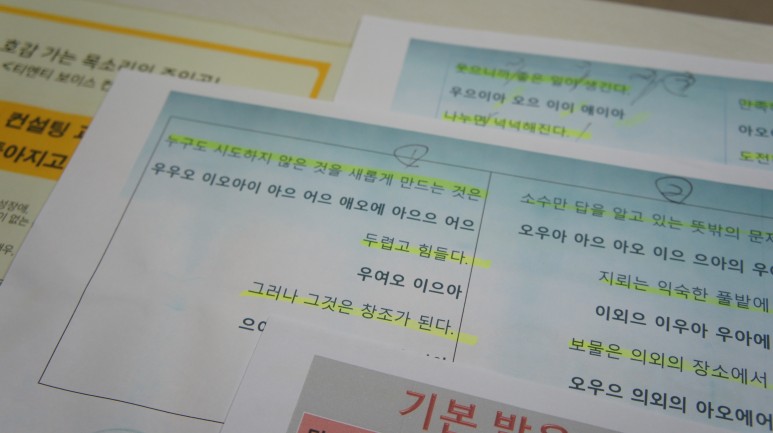 호감 가는 목소리의 주인공!
<티엔티 보이스 컨
컨설팅
아지고
이 없는
웃으니까 좋은 일이 생긴다.
우으이아 오으 이이 애이아
나누면 넉넉해진다.
만족
아오
도전
1
누구도 시도하지 않은 것을 새롭게 만드는 것은
우우오 이오아이 아으 어으 애오에 아으으 어으
두렵고 힘들다.
우여오 이으아
그러나 그것은 창조가 된다.
으이
2
소수만 답을 알고 있는 뜻밖의 문자
오우아 아으 아오 이으 으아의 우
지뢰는 익숙한 풀밭에
이외으 이우아 우아에
보물은 의외의 장소에서
오우으 의외의 아오에어
기본 발음